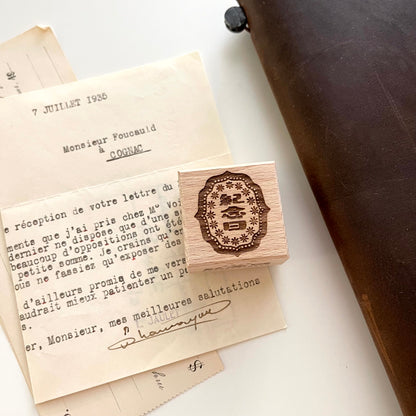 7 JUILLET 1935
Monsieur Foucauld
à
COGNAC
e réception de votre lettre du
ments que j'ai pris chez Me Voi
dernier ne dispose que d'une s
beaucoup d'oppositions ont été
petite somme. Je crains qu'e
ous ne fassiez qu'exposer de
d'ailleurs promis de me vers
audrait mieux patienter un p
s.
er, Monsieur, mes meilleures salutations
JALLET
紀念日